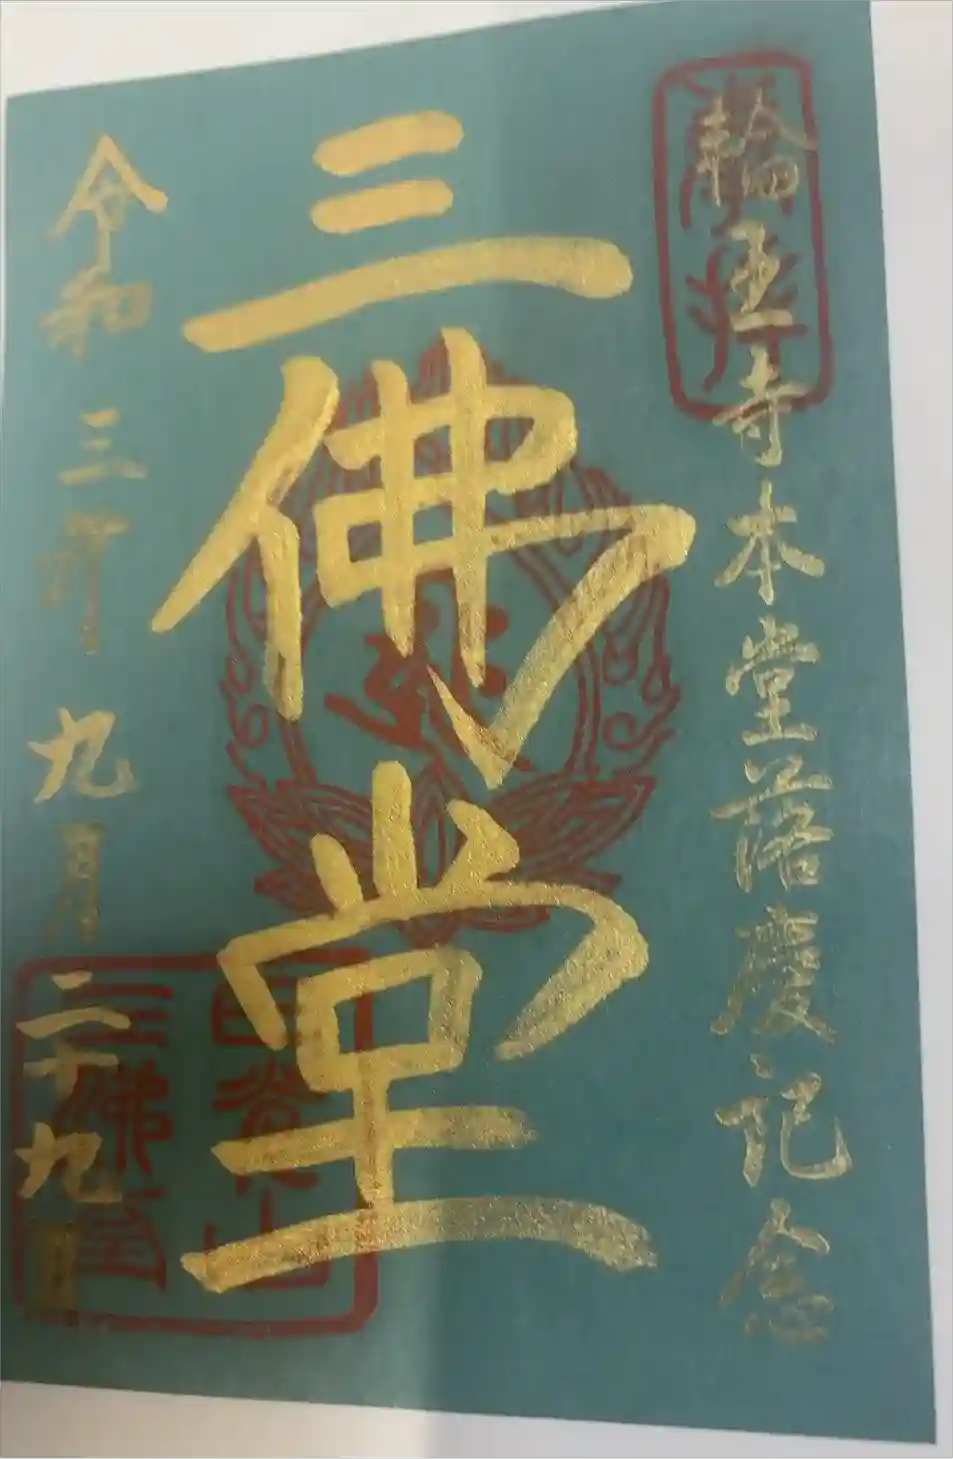 輪王寺本堂落慶記念
三佛堂
令和三年九月二十九日
日光山
三佛堂